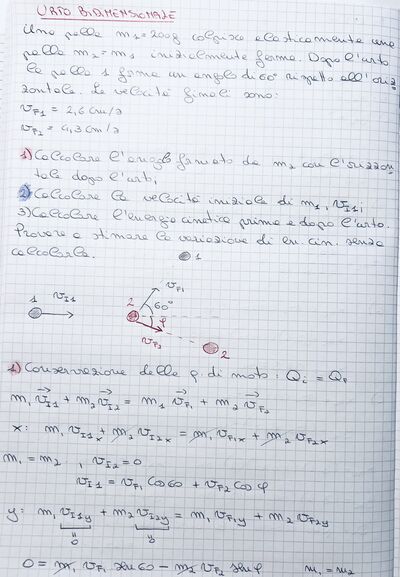 URTO BIDIMENSIONALE
Una palla m₁=200g colpisce elasticamente una
palla m₂=m₁ inizialmente ferma. Dopo l'urto
la palla 1 forma un angolo di 60° rispetto all'oriz
zontale. Le velocità finali sono:
v_F1 = 2,6 cm/s
v_F2 = 4,3 cm/s
1) Calcolare l'angolo formato da m₂ con l'orizzon
tale dopo l'urto;
2) Calcolare la velocità iniziale di m₁, v_I1;
3) Calcolare l'energia cinetica prima e dopo l'urto.
Provare a stimare la variazione di en. cin. senza
calcolarla.
1
1 v_I1 2 v_F1 60° φ v_F2 2
1) Conservazione della q. di moto: Q_i = Q_f
m₁ v_I1 + m₂ v_I2 = m₁ v_F1 + m₂ v_F2
x: m₁ v_I1x + m₂ v_I2x = m₁ v_F1x + m₂ v_F2x
m₁ = m₂ , v_I2 = 0
v_I1 = v_F1 cos60 + v_F2 cosφ
y: m₁ v_I1y + m₂ v_I2y = m₁ v_F1y + m₂ v_F2y
0 0
0 = m₁ v_F1 sen60 − m₂ v_F2 senφ m₁ = m₂